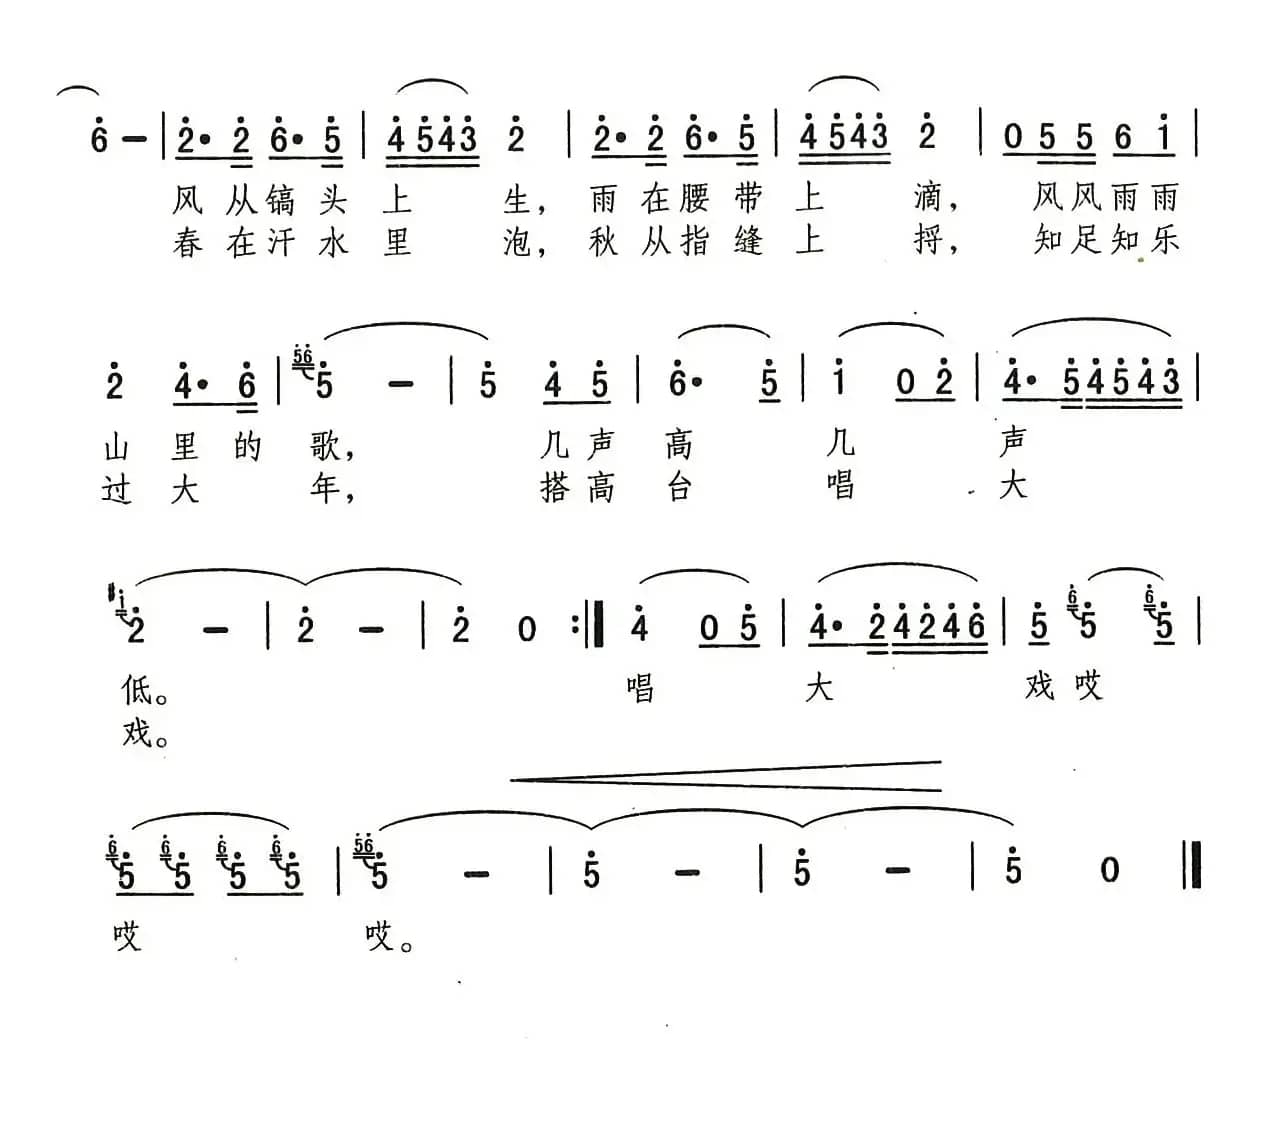 6̇ – | 2̇· 2̇ 6̇· 5̇ | 4̇ 5̇ 4̇ 3̇ 2̇ | 2̇· 2̇ 6̇· 5̇ | 4̇ 5̇ 4̇ 3̇ 2̇ | 0 5 5 6 1̇ |
风从镐头上 生, 雨在腰带上 滴, 风风雨雨
春在汗水里 泡, 秋从指缝上 捋, 知足知乐
2̇ 4̇· 6̇ | 5̇6̇ 5̇ – | 5̇ 4̇ 5̇ | 6̇· 5̇ | 1̇ 0 2̇ | 4̇· 5̇ 4̇ 5̇ 4̇ 3̇ |
山里的歌, 几声高几 声
过大 年, 搭高台唱 大
#1̇ 2̇ – | 2̇ – | 2̇ 0 :‖ 4̇ 0 5̇ | 4̇· 2̇ 4̇ 2̇ 4̇ 6̇ | 5̇ 6̇ 5̇ 6̇ 5̇ |
低。 唱 大 戏哎
戏。
6̇ 5̇ 6̇ 5̇ 6̇ 5̇ 6̇ 5̇ | 5̇6̇ 5̇ – | 5̇ – | 5̇ – | 5̇ 0 ‖
哎 哎。